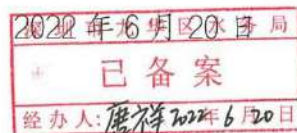 2022年6月20日
龙华区水务局
已备案
经办人:祥2022年6月20日